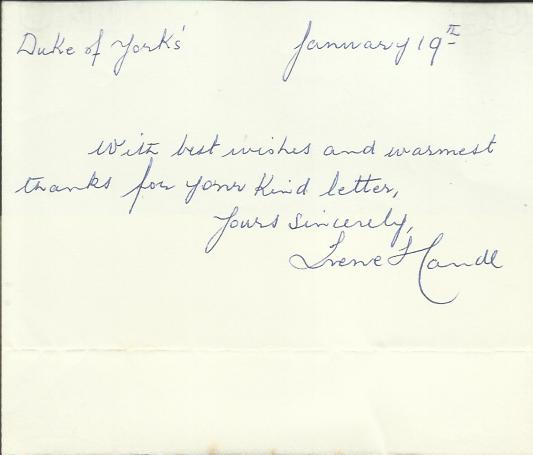 Duke of York's
January 19th
With best wishes and warmest
thanks for your kind letter,
Yours sincerely,
Irene Handl